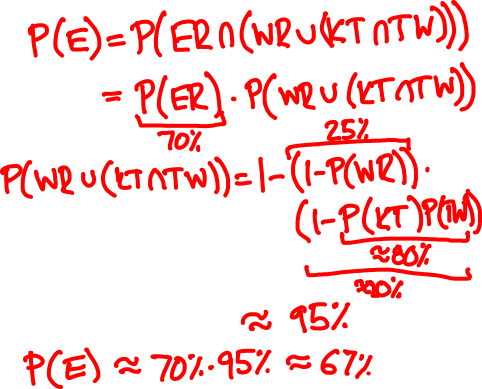 P(E)=P(ER∩(WR∪(KT∩TW)))
=P(ER)·P(WR∪(KT∩TW))
70%
25%
P(WR∪(KT∩TW))=1-(1-P(WR))·
(1-P(KT)P(TW))
≈80%
≈20%
≈ 95%
P(E) ≈ 70%·95% ≈ 67%